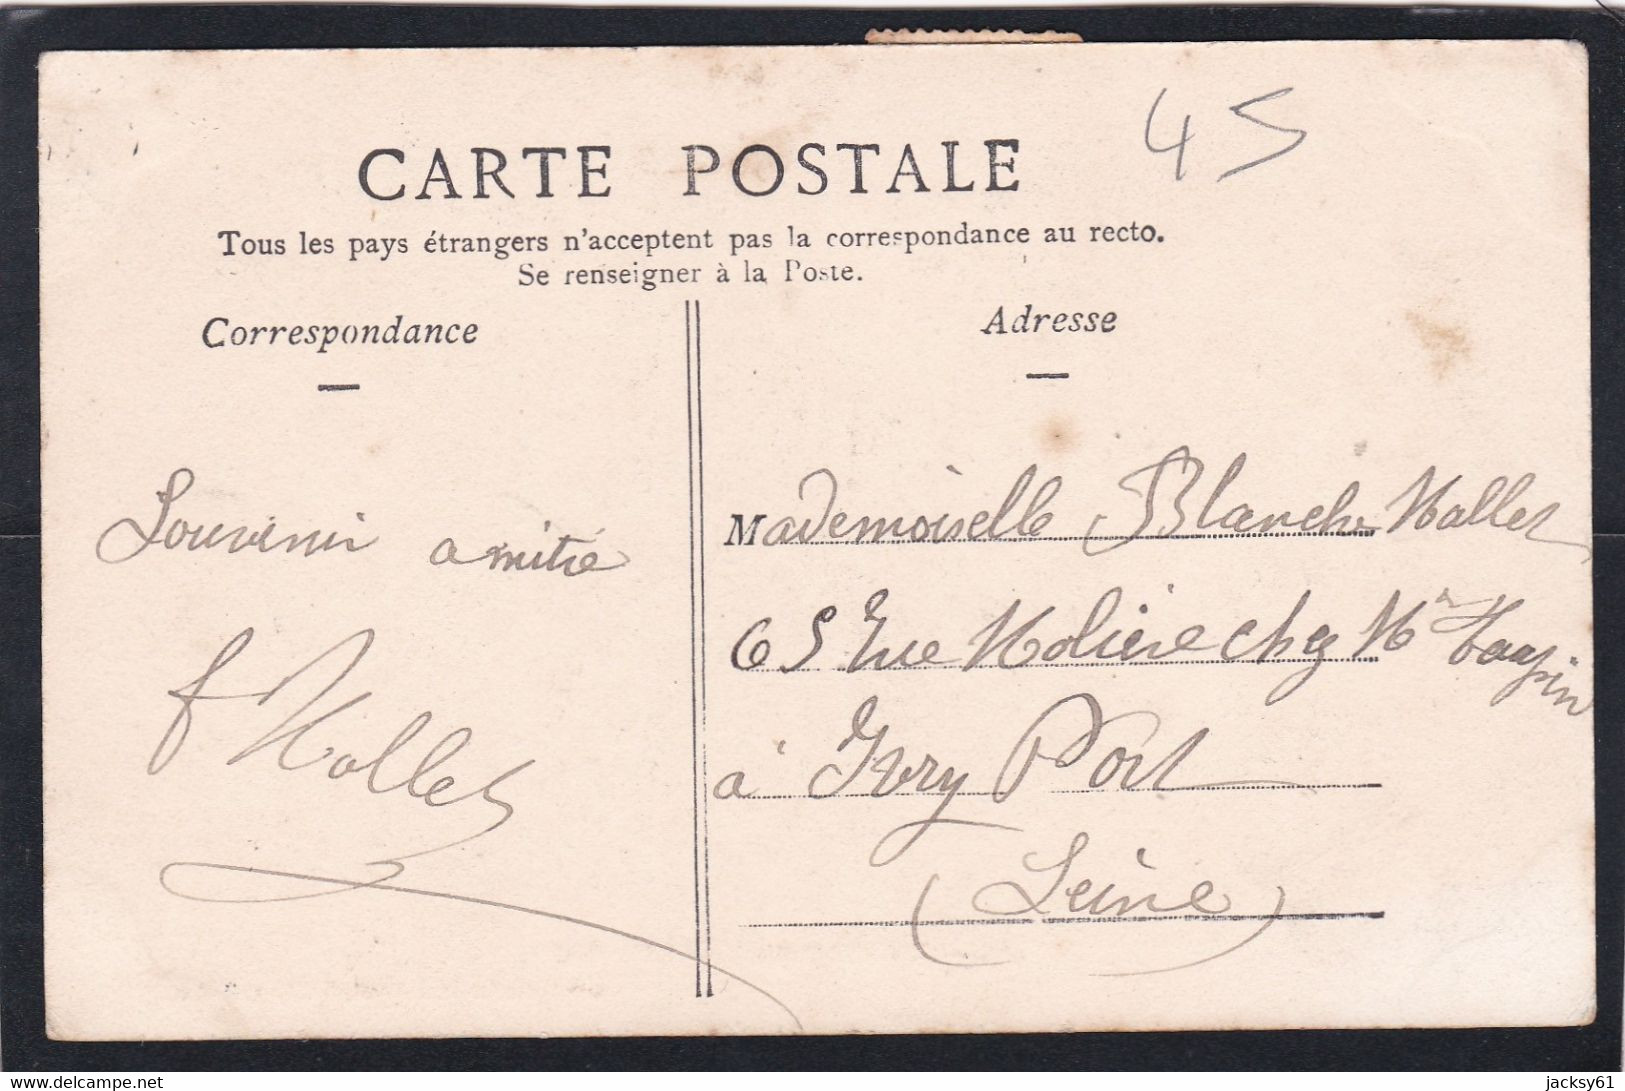 45
CARTE POSTALE
Tous les pays étrangers n'acceptent pas la correspondance au recto.
Se renseigner à la Poste.
Correspondance
Souvenir amitié
f Hallet
Adresse
Mademoiselle Blanche Hallet
65 rue Molière chez Mr
à Ivry Port
(Seine)
delcampe.net
jacksy61